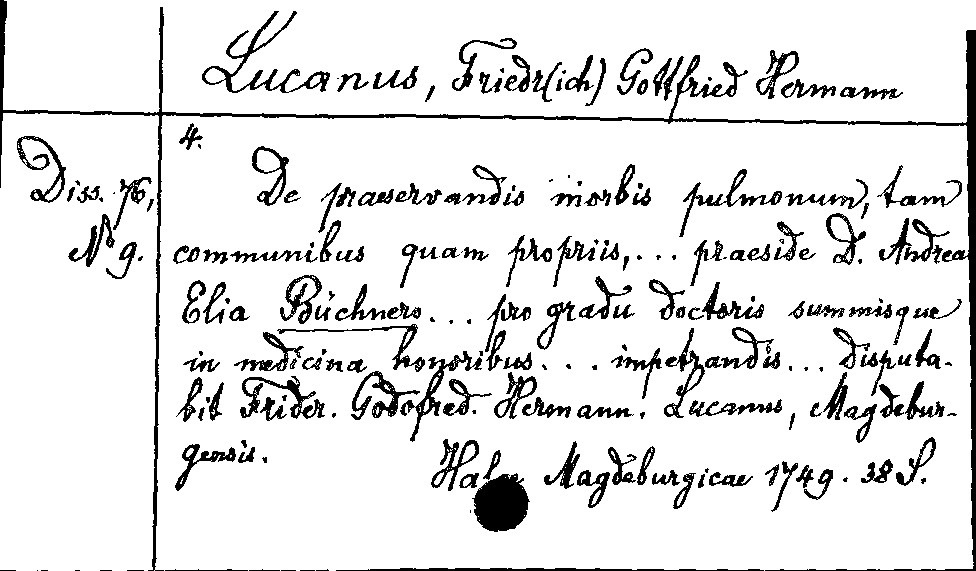 Lucanus, Friedr(ich) Gottfried Hermann
4.
Diss. 76,
N 9.
De praeservandis morbis pulmonum, tam
communibus quam propriis,... praeside D. Andrea
Elia Büchnero... pro gradu doctoris summisque
in medicina honoribus... impetrandis... disputa-
bit Frider. Godofred. Hermann. Lucanus, Magdebur-
gensis.
Halae Magdeburgicae 1749. 38 S.